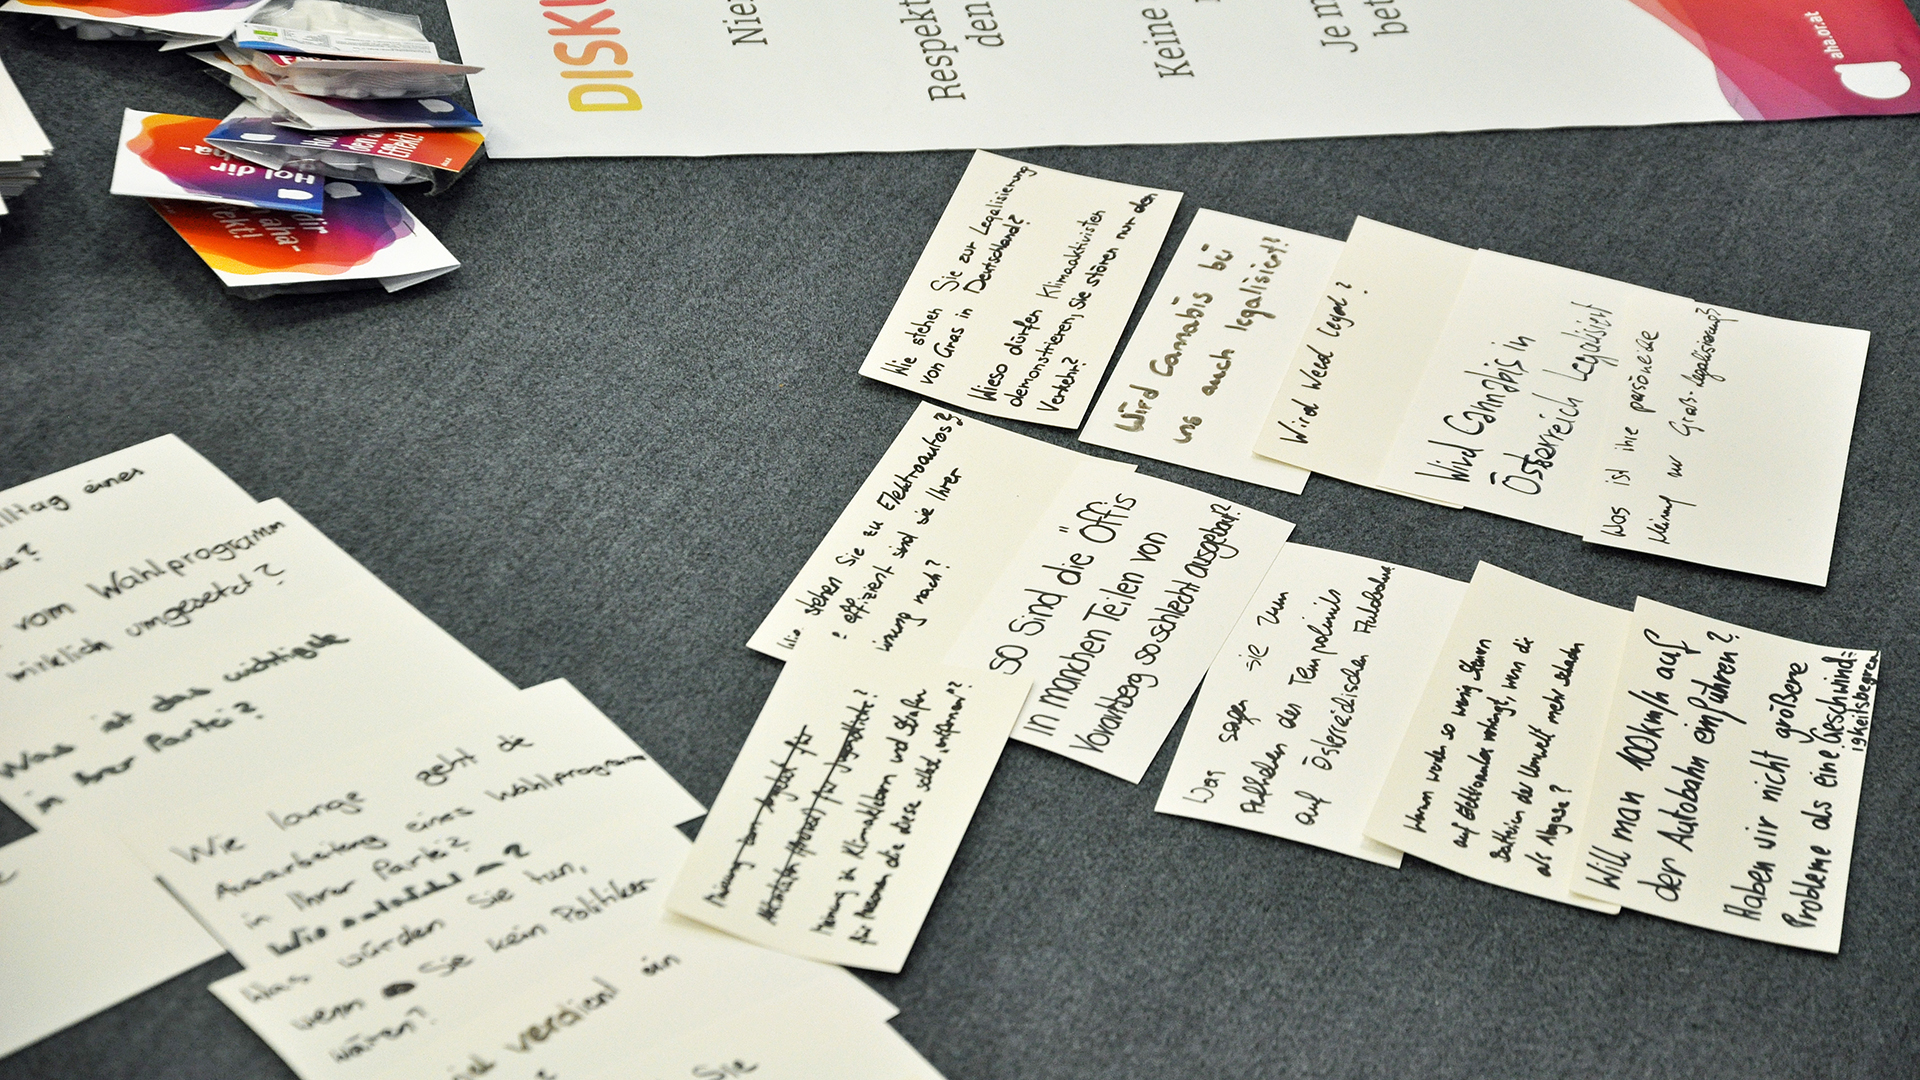 DISKU
Nie
Respekt
den
Keine
Je m
bet
aha.or.at
Hol dir
aha-
Effekt!
dir
aha-
ekt!
Wie stehen Sie zur Legalisierung
von Gras in Deutschland?
Wieso dürfen Klimaaktivisten
demonstrieren, sie stören nur den
Verkehr?
Wird Cannabis bei
uns auch legalisiert?
Wird Weed legal?
Wird Cannabis in
Österreich Legalisiert
Was ist ihre persönliche
Meinung zur Graß-legalisierung?
Wie stehen Sie zu Elektroautos?
effizient sind sie Ihrer
inung nach?
so Sind die Öffis
in manchen Teilen von
Vorarlberg so schlecht ausgebaut?
Was sagen sie zum
Aufheben des Tempolimits
auf Österreichischen Autobahn
Warum werden so wenig Steuern
auf Elektroautos verhängt, wenn die
Batterien der Umwelt mehr schaden
als Abgase?
Will man 100km/h auf
der Autobahn einführen?
Haben wir nicht größere
Probleme als eine Geschwind=
igkeitsbegren
Meinung zu Klimaklebern und Strafen
für Personen die diese selbst „entfernen"?
lltag eines
vom Wahlprogramm
wirklich umgesetzt?
Was ist das wichtigste
in Ihrer Partei?
Wie lange geht die
Ausarbeitung eines Wahlprogramm
in Ihrer Partei?
Was würden Sie tun,
wenn Sie kein Politiker
wären?
verdient ein
Sie